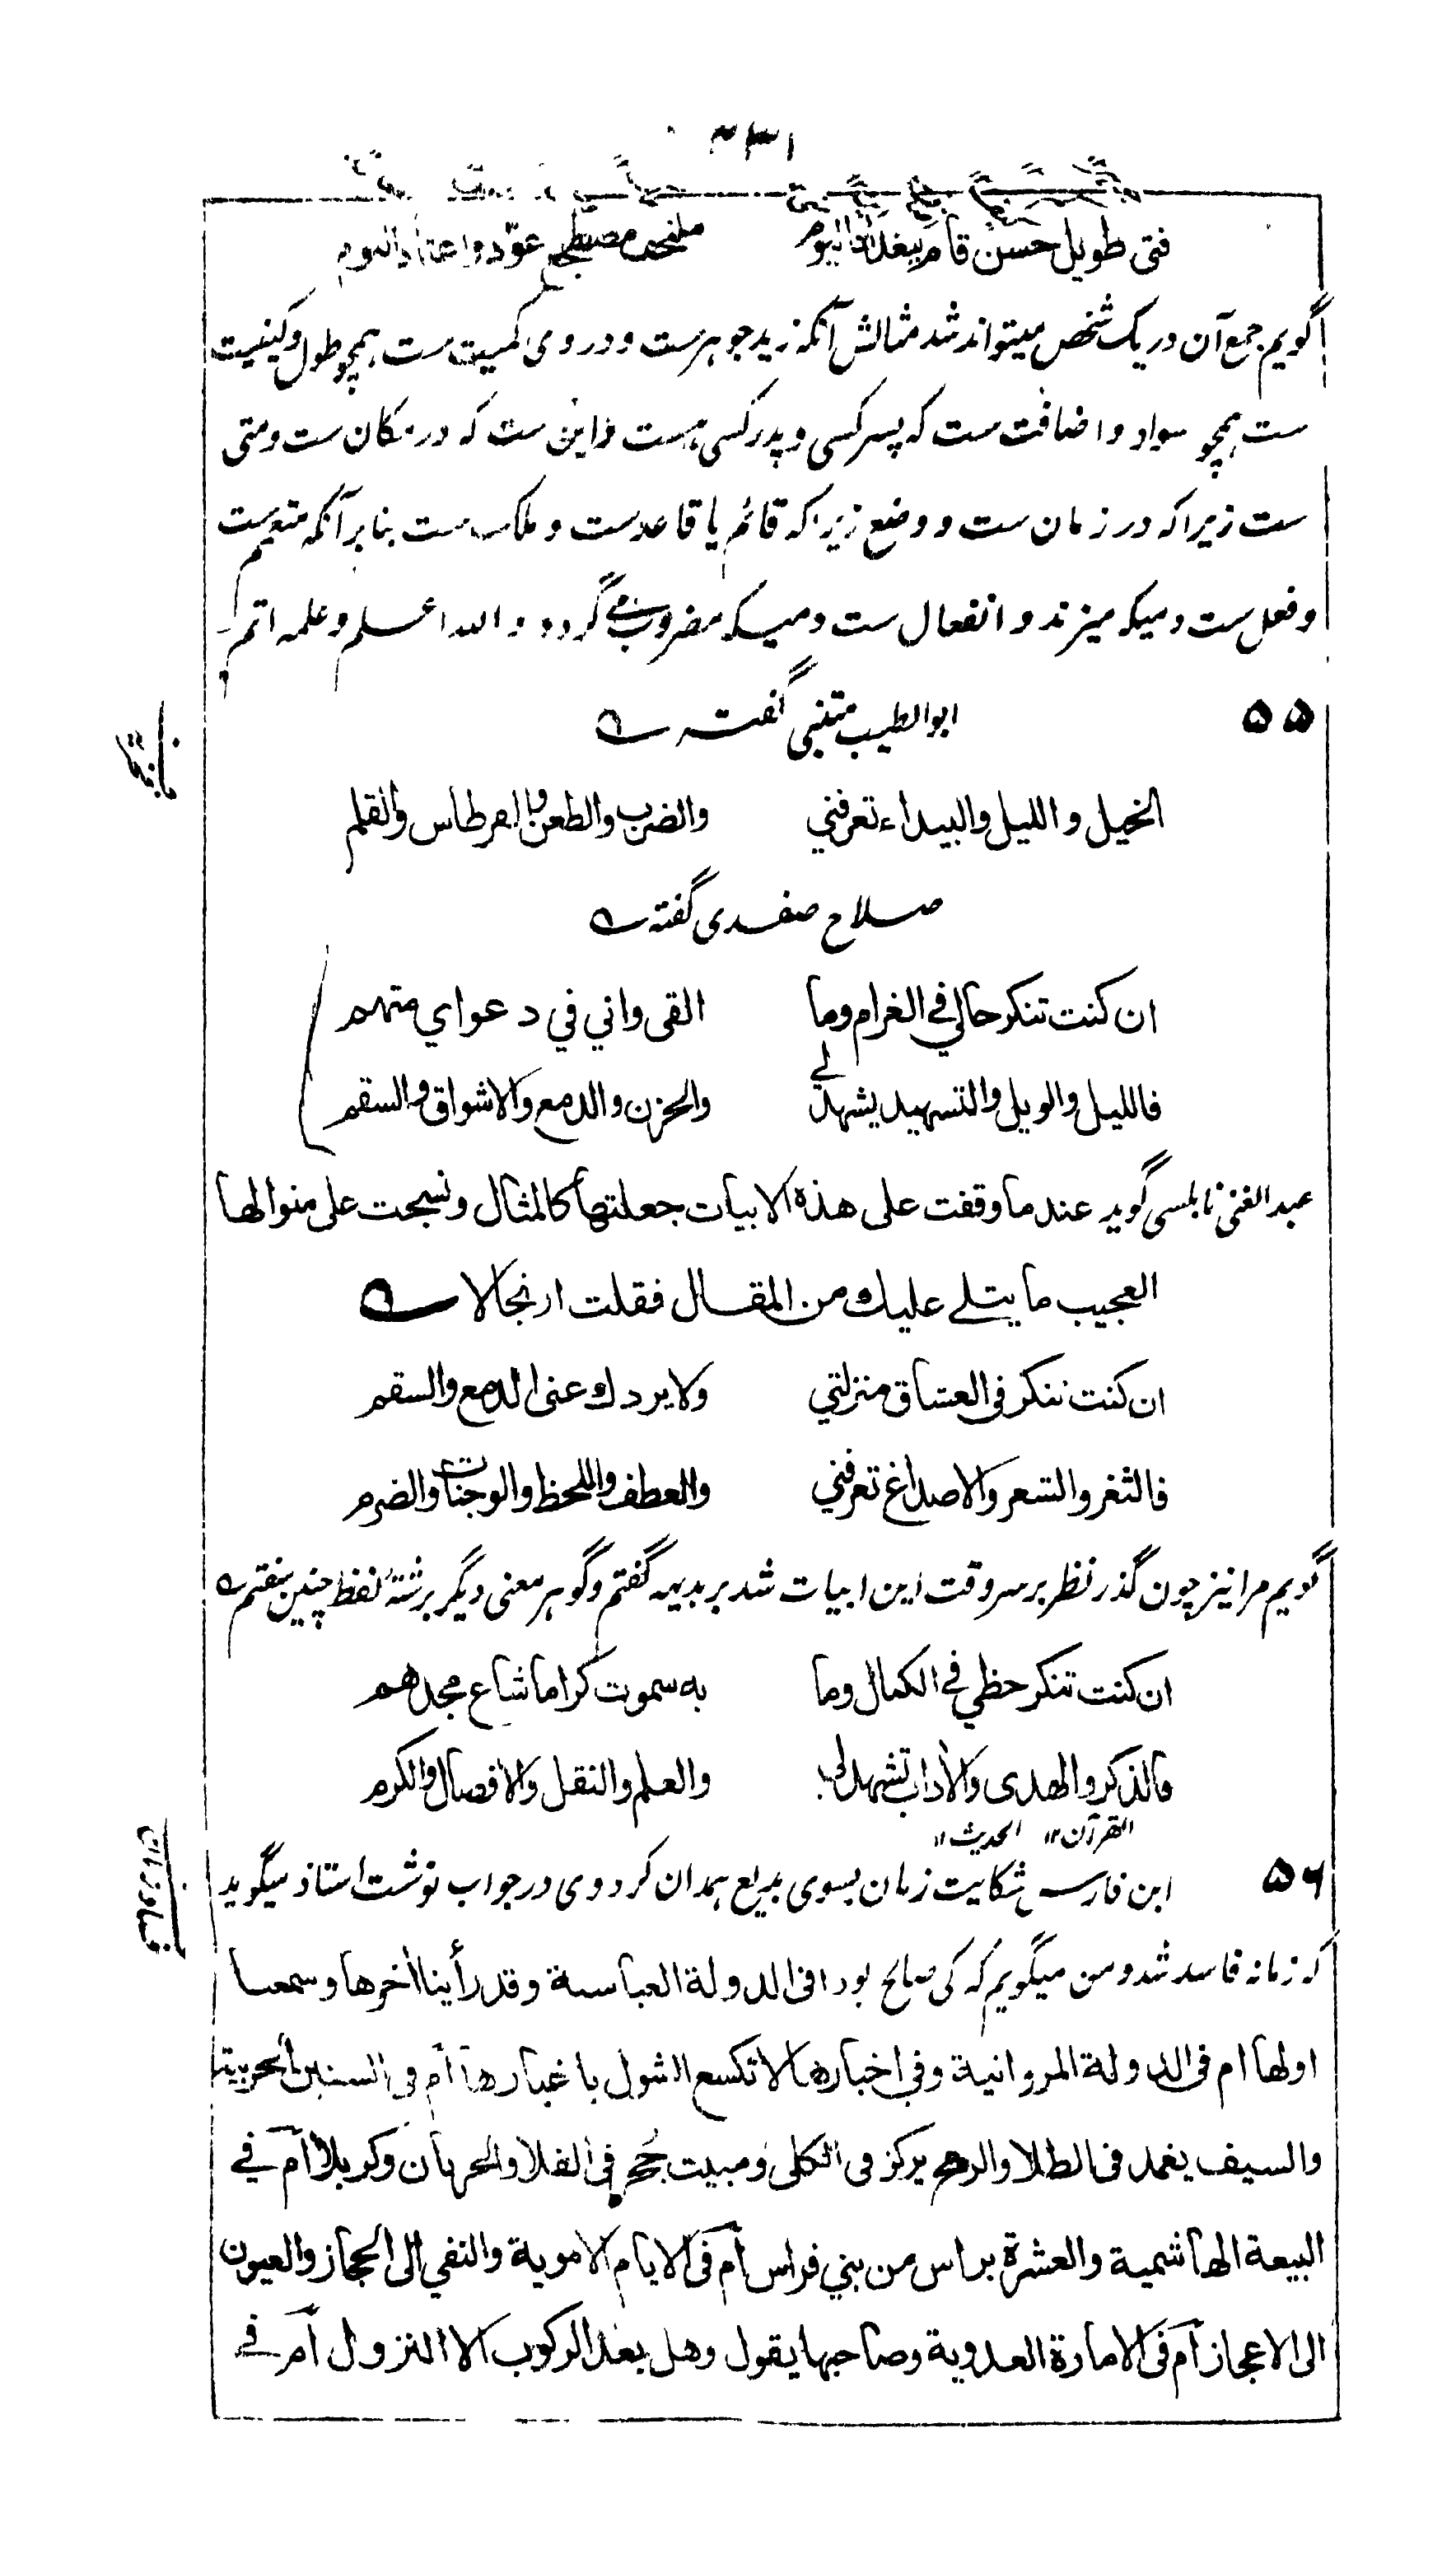 ۳۳۱
فتى طويل حسن قام ببغداد اليوم ملتحف مصطبح عوّد واعتاد النوم
گویم جمع آن در یک شخص میتواند شد مثالش آنکه زید جوهرست و در وی کمیت ست همچو طول و کیفیت
ست همچو سواد و اضافت ست که پسر کسی و پدر کسی هست و این ست که در مکان ست و متی
ست زیرا که در زمان ست و وضع زیرا که قائم یا قاعدست و ملک ست بنابر آنکه متعمم ست
و فعل ست دمیکه میزند و انفعال ست دمیکه مضروب می گردد و الله اعلم و علمه اتم
۵۵ ابو الطیب متنبی گفته
الخيل والليل والبيداء تعرفني والضرب والطعن والقرطاس والقلم
صلاح صفدی گفته
ان كنت تنكر حالي في الغرام وما القى واني في دعواي متهم
فالليل والويل والتسهيد يشهد لي والحزن والدمع والاشواق والسقم
عبد الغنی نابلسی گوید عند ما وقفت على هذه الابيات جعلتها كالمثال ونسجت على منوالها
العجيب ما يتلى عليك من المقال فقلت ارتجالا
ان كنت تنكر في العشاق منزلتي ولا يردك عني الدمع والسقم
فالثغر والشعر والاصداغ تعرفني والعطف واللحظ والوجنات والضرم
گویم مرا نیز چون گذر نظر بر سر وقت این ابیات شد بر بدیهه گفتم و گوهر معنی دیگر برشتۀ لفظ چنین سفتم
ان كنت تنكر حظي في الكمال وما به سموت كراما شاع مجدهم
فالذكر والهدى والآداب تشهد لي والعلم والنقل والافضال والكرم
القرآن ۱۲ الحديث ۱۲
۵۶ ابن فارس شکایت زمان بسوی بدیع همدان کرد وی در جواب نوشت استاذ میگوید
که زمانه فاسد شد و من میگویم که کی صالح بود افى الدولة العباسية وقد رأينا آخرها وسمعنا
اولها ام فى الدولة المروانية وفي اخبارها لا تكسع الشول باغبارها أم فى السنين الحربية
والسيف يغمد فى الطلا والرمح يركز فى الكلى ومبيت حُجر فى الفلا والحرتان وكربلا أم في
البيعة الهاشمية والعشرة براس من بني فراس أم فى الايام الاموية والنفي الى الحجاز والعيون
الى الاعجاز أم فى الامارة العدوية وصاحبها يقول وهل بعد الركوب الا النزول أم في